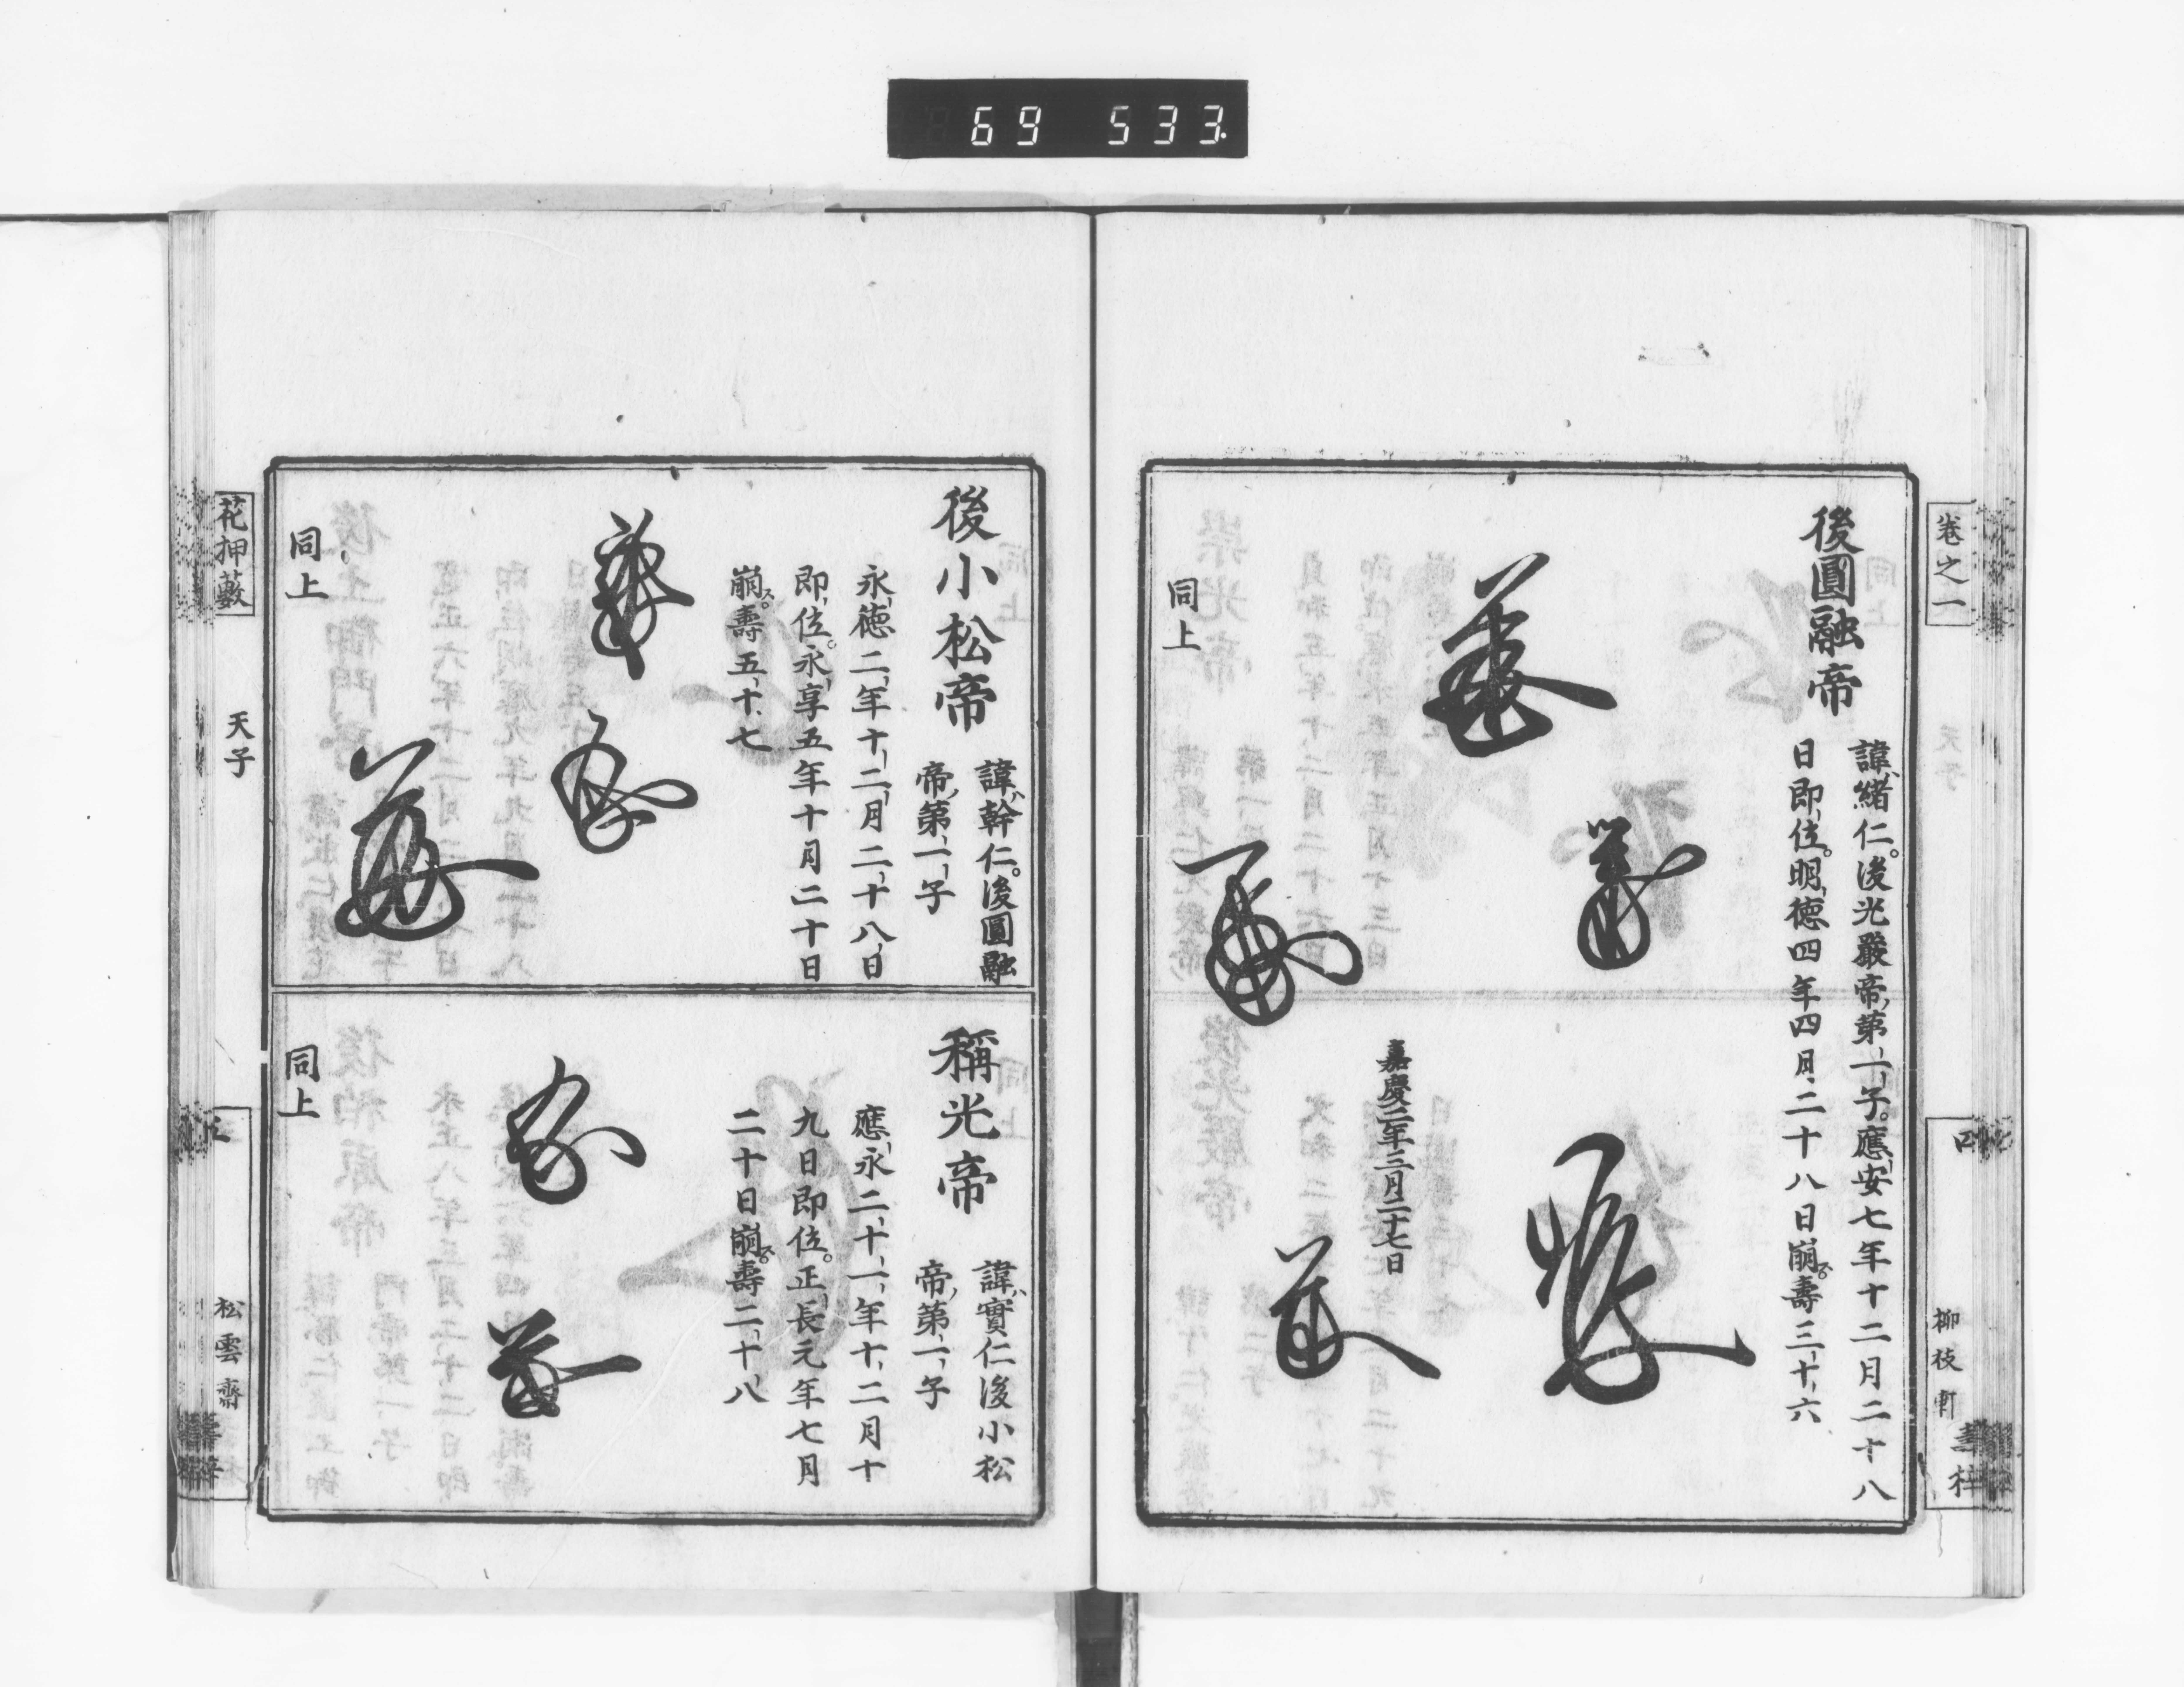 69 533
卷之一
四
柳枝軒
後圓融帝
諱ハ緒仁。後光嚴帝ノ第一ノ子。應安七年十二月二十八
日即位。明德四年四月二十八日崩ス。壽三十六
嘉慶二年三月二十七日
同上
後小松帝
諱ハ幹仁。後圓融
帝ノ第一ノ子
永德二年十二月二十八日
即位。永享五年十月二十日
崩ス。壽五十七
同上
稱光帝
諱ハ實仁後小松
帝ノ第一ノ子
應永二十一年十二月十
九日即位。正長元年七月
二十日崩ス。壽二十八
同上
花押藪
天子
五
松雲齋